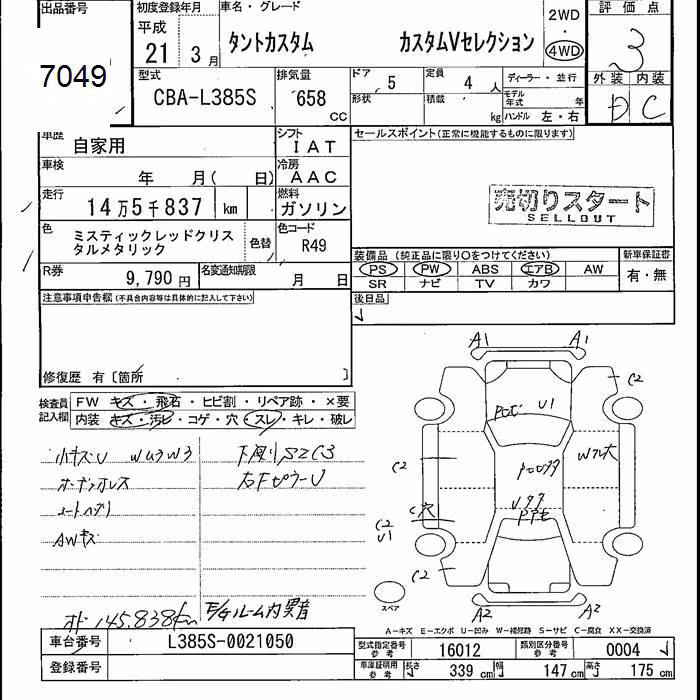 出品番号
7049
初度登録年月
平成
21 3月
車名・グレード
タントカスタム カスタムVセレクション
2WD
・
4WD
評価点
3
外装 内装
D C
型式
CBA-L385S
排気量
658
CC
ドア 5
定員 4 人
形状
積載 kg
ディーラー・並行
モデル年式 年
ハンドル 左・右
車歴
自家用
シフト
IAT
車検
年 月( 日)
冷房
AAC
走行
14万5千837 km
燃料
ガソリン
色
ミスティックレッドクリス
タルメタリック
色替
色コード
R49
R券
9,790 円
名変通知期限
月 日
セールスポイント(正常に機能するものに限ります)
売切りスタート
SELLOUT
装備品 (純正品に限り○をつけてください)
PS PW ABS エアB AW
SR ナビ TV カワ
新車保証書
有・無
後日品
注意事項申告欄(不具合内容等は具体的に記入して下さい)
修復歴 有〔箇所 〕
検査員
記入欄
FW キズ・飛石・ヒビ割・リペア跡・×要
内装 キズ・汚レ・コゲ・穴・スレ・キレ・破レ
小キズU WU3 W3
下廻りS2C3
右FピラーU
AWキズ
145.838km
E/Gルーム内異音
A1 A1
C2
U1
C2
C穴
C2
U1
C2
A2 A2
スペア
A-キズ E-エクボ U-凹み W-補修跡 S-サビ C-腐食 XX-交換済
車台番号
L385S-0021050
登録番号
型式指定番号
参考
16012
類別区分番号
参考
0004
車庫証明用
参考
長さ 339 cm
幅 147 cm
高さ 175 cm